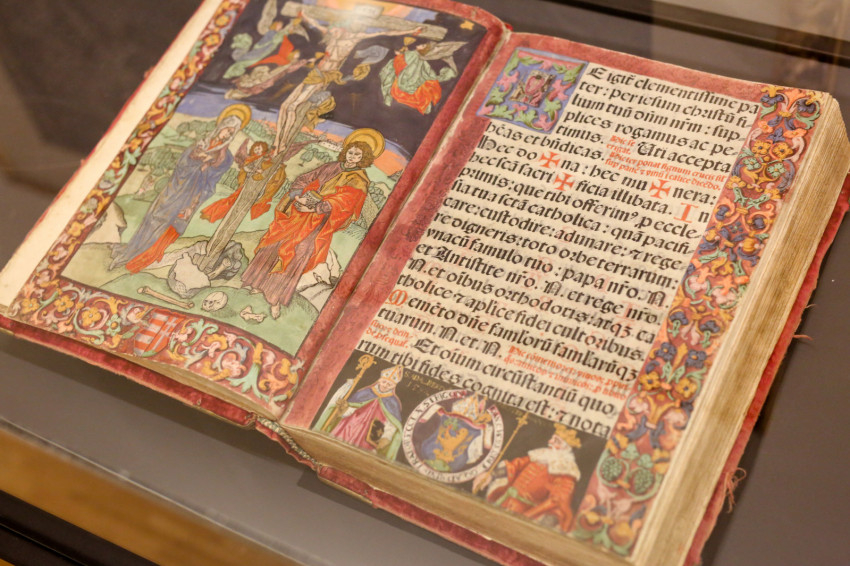 E igit̃ clementissime pa
ter: per iesum christũ fi
lium tuũ dñm nr̃m: sup
plices rogamus ac pe
timus. Uti accepta
beas et bñdicas.
Hec do✠na: hec mu✠nera:
hec scã sacri✠ficia illibata. In
primis: que tibi offerim⁹ ꝓ eccle
sia tua scta catholica: quã pacifi
care: custodire: adunare: ⁊ rege
re digneris: toto orbe terrarum:
vnacũ famulo tuo papa nr̃o. N.
et Antistite nr̃o. N. et rege nr̃o
N. et oĩbus orthodoxis: atqꝫ ca
tholice ⁊ aplice fidei cultoribus.
Memẽto dñe famulorũ famularũqꝫ
tuarum. N. et. N.
Et oĩum circũstantiũ quo
rum tibi fides cognita est: ⁊ nota